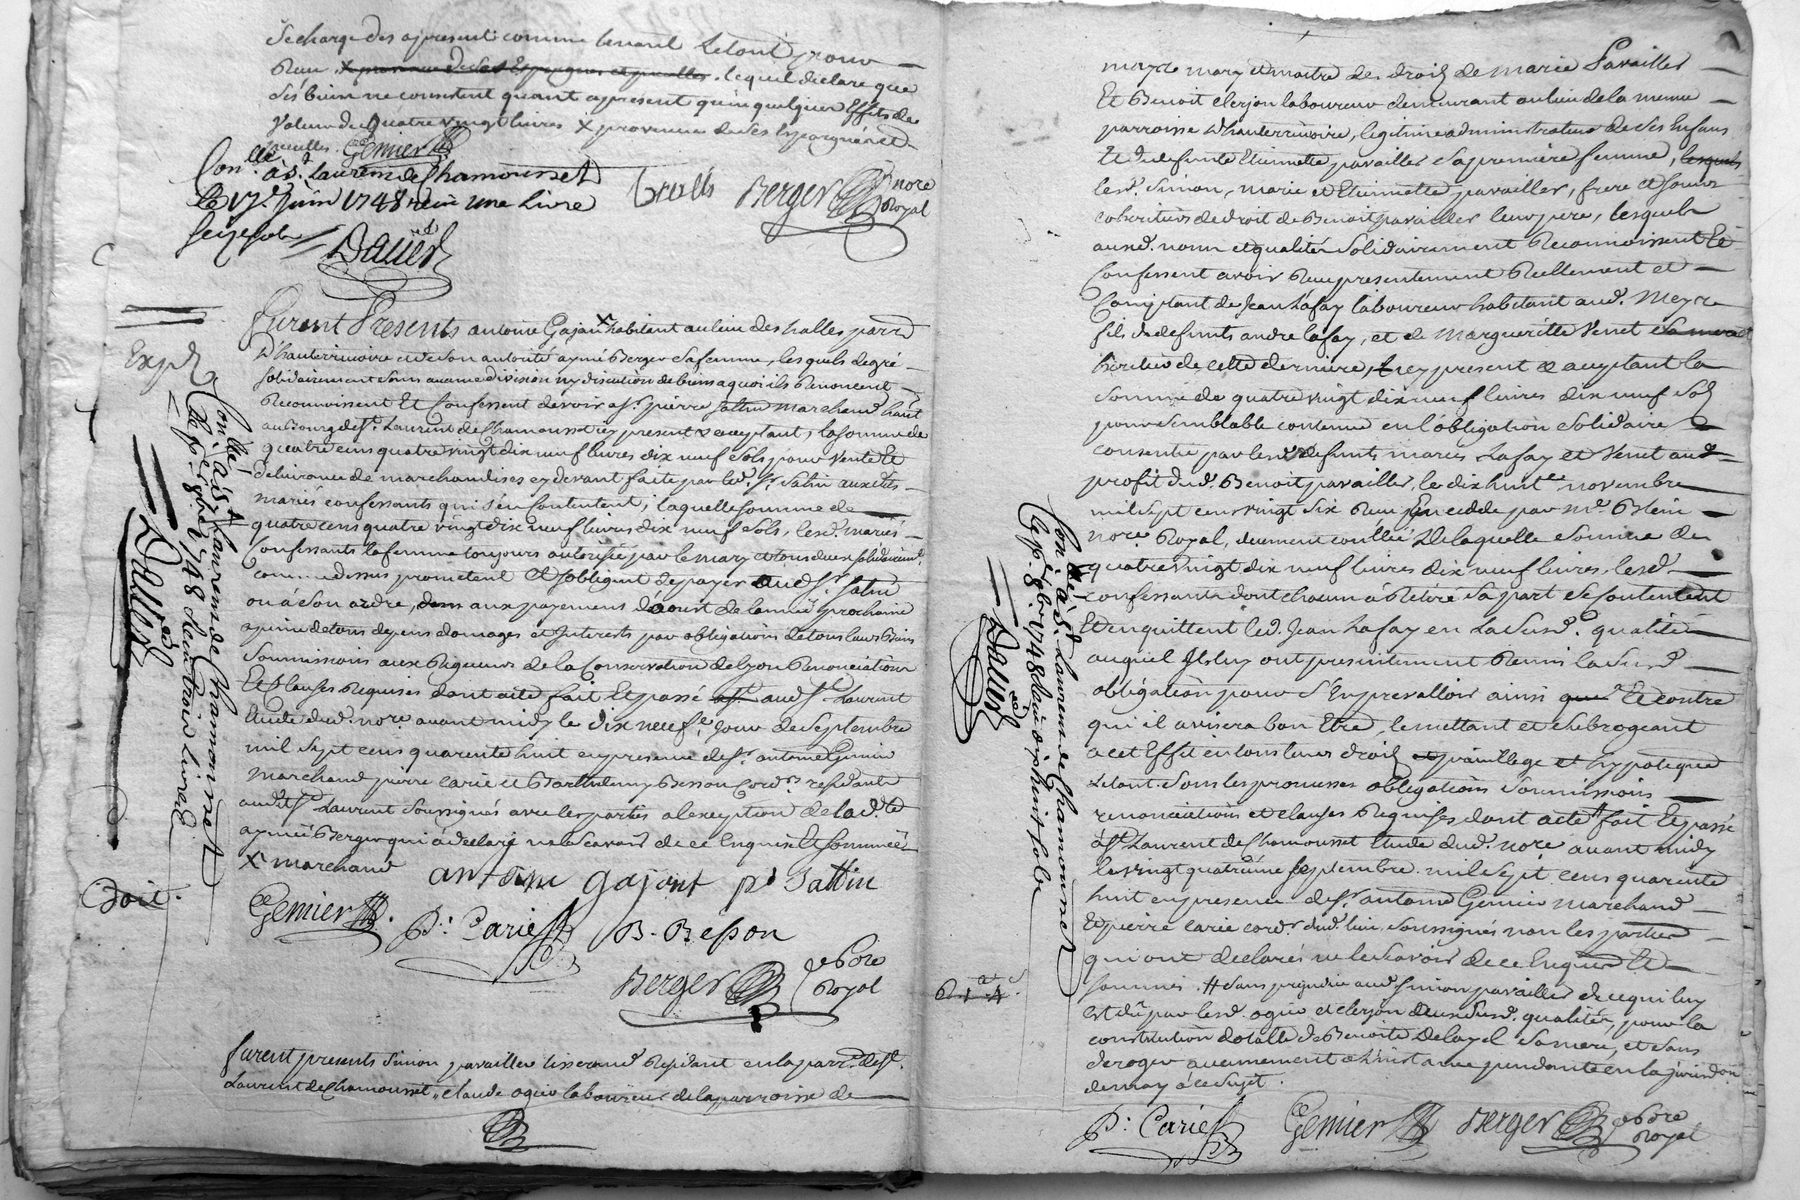 Sécharge des apresent comme tenant Letout pour
lequel declare que
ses biens ne consistent quant apresent qu'en quelques Effets de
valeur de quatre vingt livres X provenus de ses Epargnes et
Gemier
Con.lle à s.t Laurent de Chamousset
le 17e juin 1748 Reçu une Livre
Seize sols
Berger nore
Royal
Daved
Furent Presents antoine Gajan X habitant au lieu des halles parr.
D'hauterivoire et de son autorité aymé Berger sa femme, lesquels de gré
solidairement sans aucune division ny discution de biens a quoi ils Renoncent
Reconnoissent Et Confessent devoir a s.r pierre sattin marchand h'ant
au bourg de s.t Laurent de Chamousset icy present & acceptant, la somme de
quatre cens quatre vingt dix neuf livres dix neuf sols pour vente Et
délivrance de marchandises cy devant faite par led. s.r Satin auxdits
mariés confessants qui s'en Contentent, laquelle somme de
quatre cens quatre vingt dix neuf livres dix neuf sols, lesd. mariés
Confessants la femme toujours autorisée par le mary et tous deux solidairem.t
comme dessus prometent Et s'obligent de payer aud. s.r Satin
ou à son ordre, dans aux payemens d'aoust de l'année prochaine
a peine de tous depens domages et Interests par obligations de tous leurs Biens
Soumissions aux Rigueurs de la Conservation de Lyon Renonciations
Et Clauses Requises dont acte fait Et passé aud. s.t Laurent
Etude dud. nore avant midy le dix neuf.e Jour de Septembre
mil Sept cens quarente huit en presence de s.r antoine Gemier
Marchand pierre Carié et Barthelemy Besson Cord.rs residants
audit s.t Laurent Soussignés avec les parties a l'exeption de lad.te
aymée Berger qui a declaré ne le sçavoir de ce Enquise Et sommée
X marchand
antoine gajant p.r Sattin
Gemier
P: Carié
B. Besson
Berger nore
Royal
Exp.d
Con.llé à s.t Laurent de Chamousset
8bre 1748 Reçu Trois Livres
Daved
doit.
furent presents Simon pavailler tisserand Residant en la parr. de s.t
Laurent de Chamousset, claude ogier laboureur de la parroisse de
meyre mary et maitre des droits de marie Pavailler
Et Benoit clerjon laboureur demeurant au lieu de la même
parroisse d'hauterivoire, legitime administrateur de ses Enfans
Et de defunte Etiennette pavailler sa première femme, lesquels
lesd. Simon, marie et Etiennette pavailler, frere et soeurs
coheritiers de droit de Benoit pavailler leur pere, lesquels
auxd. noms et qualités solidairement Reconnoissent Et
Confessent avoir Reçu presentement Réellement et
Comptant de Jean Lafay laboureur habitant aud. Meyre
fils de defunts andré lafay, et de Margueritte Venet
héritier de cette dernière, icy present & acceptant la
somme de quatre vingt dix neuf livres dix neuf sols
pour semblable contenue en l'obligation solidaire
consentie par lesd. defunts mariés Lafay et Venet au
profit dud. Benoit pavailler, le dix huit.e novembre
mil sept cens vingt six Reçu par m.e Blein
nore Royal, duement conllée De laquelle Somme de
quatre vingt dix neuf livres dix neuf livres lesd.
confessants dont chacun a Retiré sa part se contentent
Et en quittent led. Jean Lafay en La Susd.e qualité
auquel Ils luy ont presentement Remis la Susd.
obligation pour S'En prevalloir ainsi Et contre
qui il avisera bon Etre, le mettant et subrogeant
a cet Effet en tous leurs droits privillege et hypoteque
Letout sous les promesses obligations soumissions
renonciations et clauses Requises dont acte fait Et passé
à s.t Laurent de Chamousset Etude dud. nore avant midy
le vingt quatrième Septembre mil sept cens quarente
huit en presence de s.r antoine Gemier marchand
Et pierre Carié cord.r dud. lieu soussignés non les parties
qui ont declarés ne le scavoir de ce Enquis Et
sommés. # sans prejudice aud. simon pavailler de ce qui luy
est dû par lesd. ogier et clerjon aux susd. qualités, pour la
constitution dotalle de Benoite Delayel sa mere, et sans
deroger aucunement a l'instance pendante en la jurisd.on
demay a ce sujet.
Con.llé à s.t Laurent de Chamousset
8bre 1748 Reçu dix huit sols
Daved
P: Carié
Gemier
Berger nore
Royal